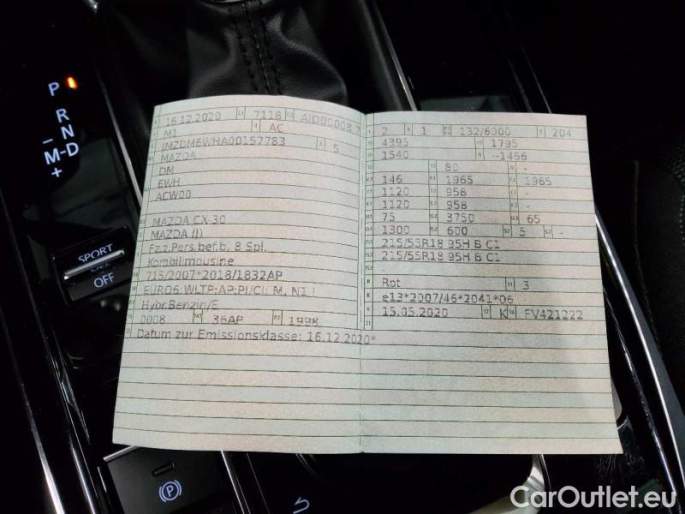 P
R
N
M-D
+
SPORT
OFF
16.12.2020 7118
M1 AC
JMZDM6WHA00157783 5
MAZDA
DM
EWH
MAZDA CX-30
MAZDA (J)
Fz.z.Pers.bef.b. 8 Spl.
Kombilimousine
715/2007*2018/1832AP
Hybr.Benzin/E
0008 36AP 1998
Datum zur Emissionsklasse: 16.12.2020*
2 1 132/6000 204
4395 1795
1540 --1456
80 -
146 1965 1965
1120 958 -
1120 958 -
75 3750 65
1300 600 5 -
215/55R18 95H B C1
215/55R18 95H B C1
Rot 3
e13*2007/46*2041*06
15.05.2020 K FV421222
CarOutlet.eu